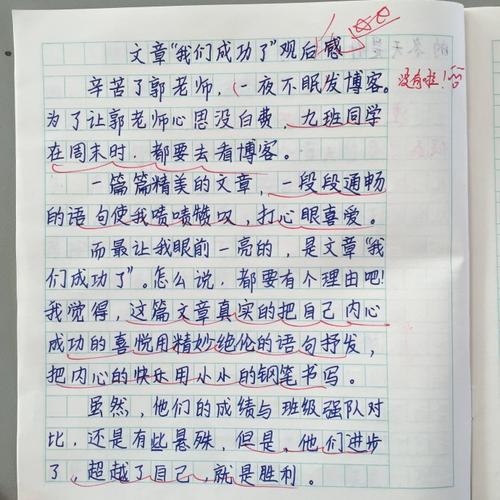 文章“我们成功了”观后感
辛苦了郭老师，一夜不眠发博客。
没有啦！
为了让郭老师心思没白费，九班同学
在周末时，都要去看博客。
一篇篇精美的文章，一段段通畅
的语句使我啧啧赞叹，打心眼喜爱。
而最让我眼前一亮的，是文章“我
们成功了”。怎么说，都要有个理由吧！
我觉得，这篇文章真实的把自己内心
成功的喜悦用精妙绝伦的语句抒发，
把内心的快乐用小小的钢笔书写。
虽然，他们的成绩与班级强队对
比，还是有些悬殊，但是，他们进步
了，超越了自己，就是胜利。